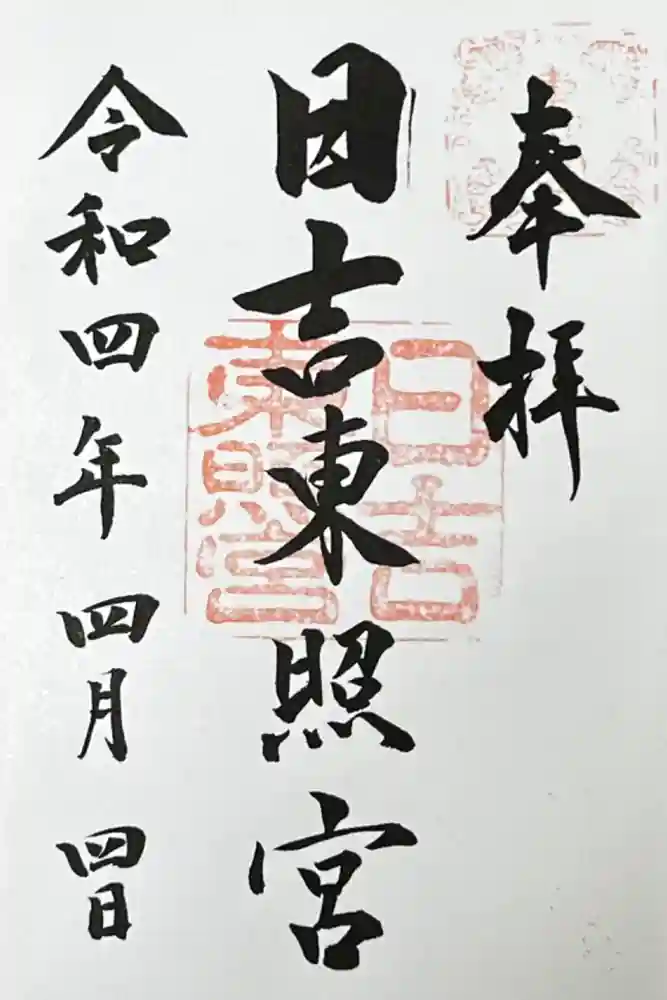 奉拝
日吉東照宮
日吉
東照宮
令和四年四月四日